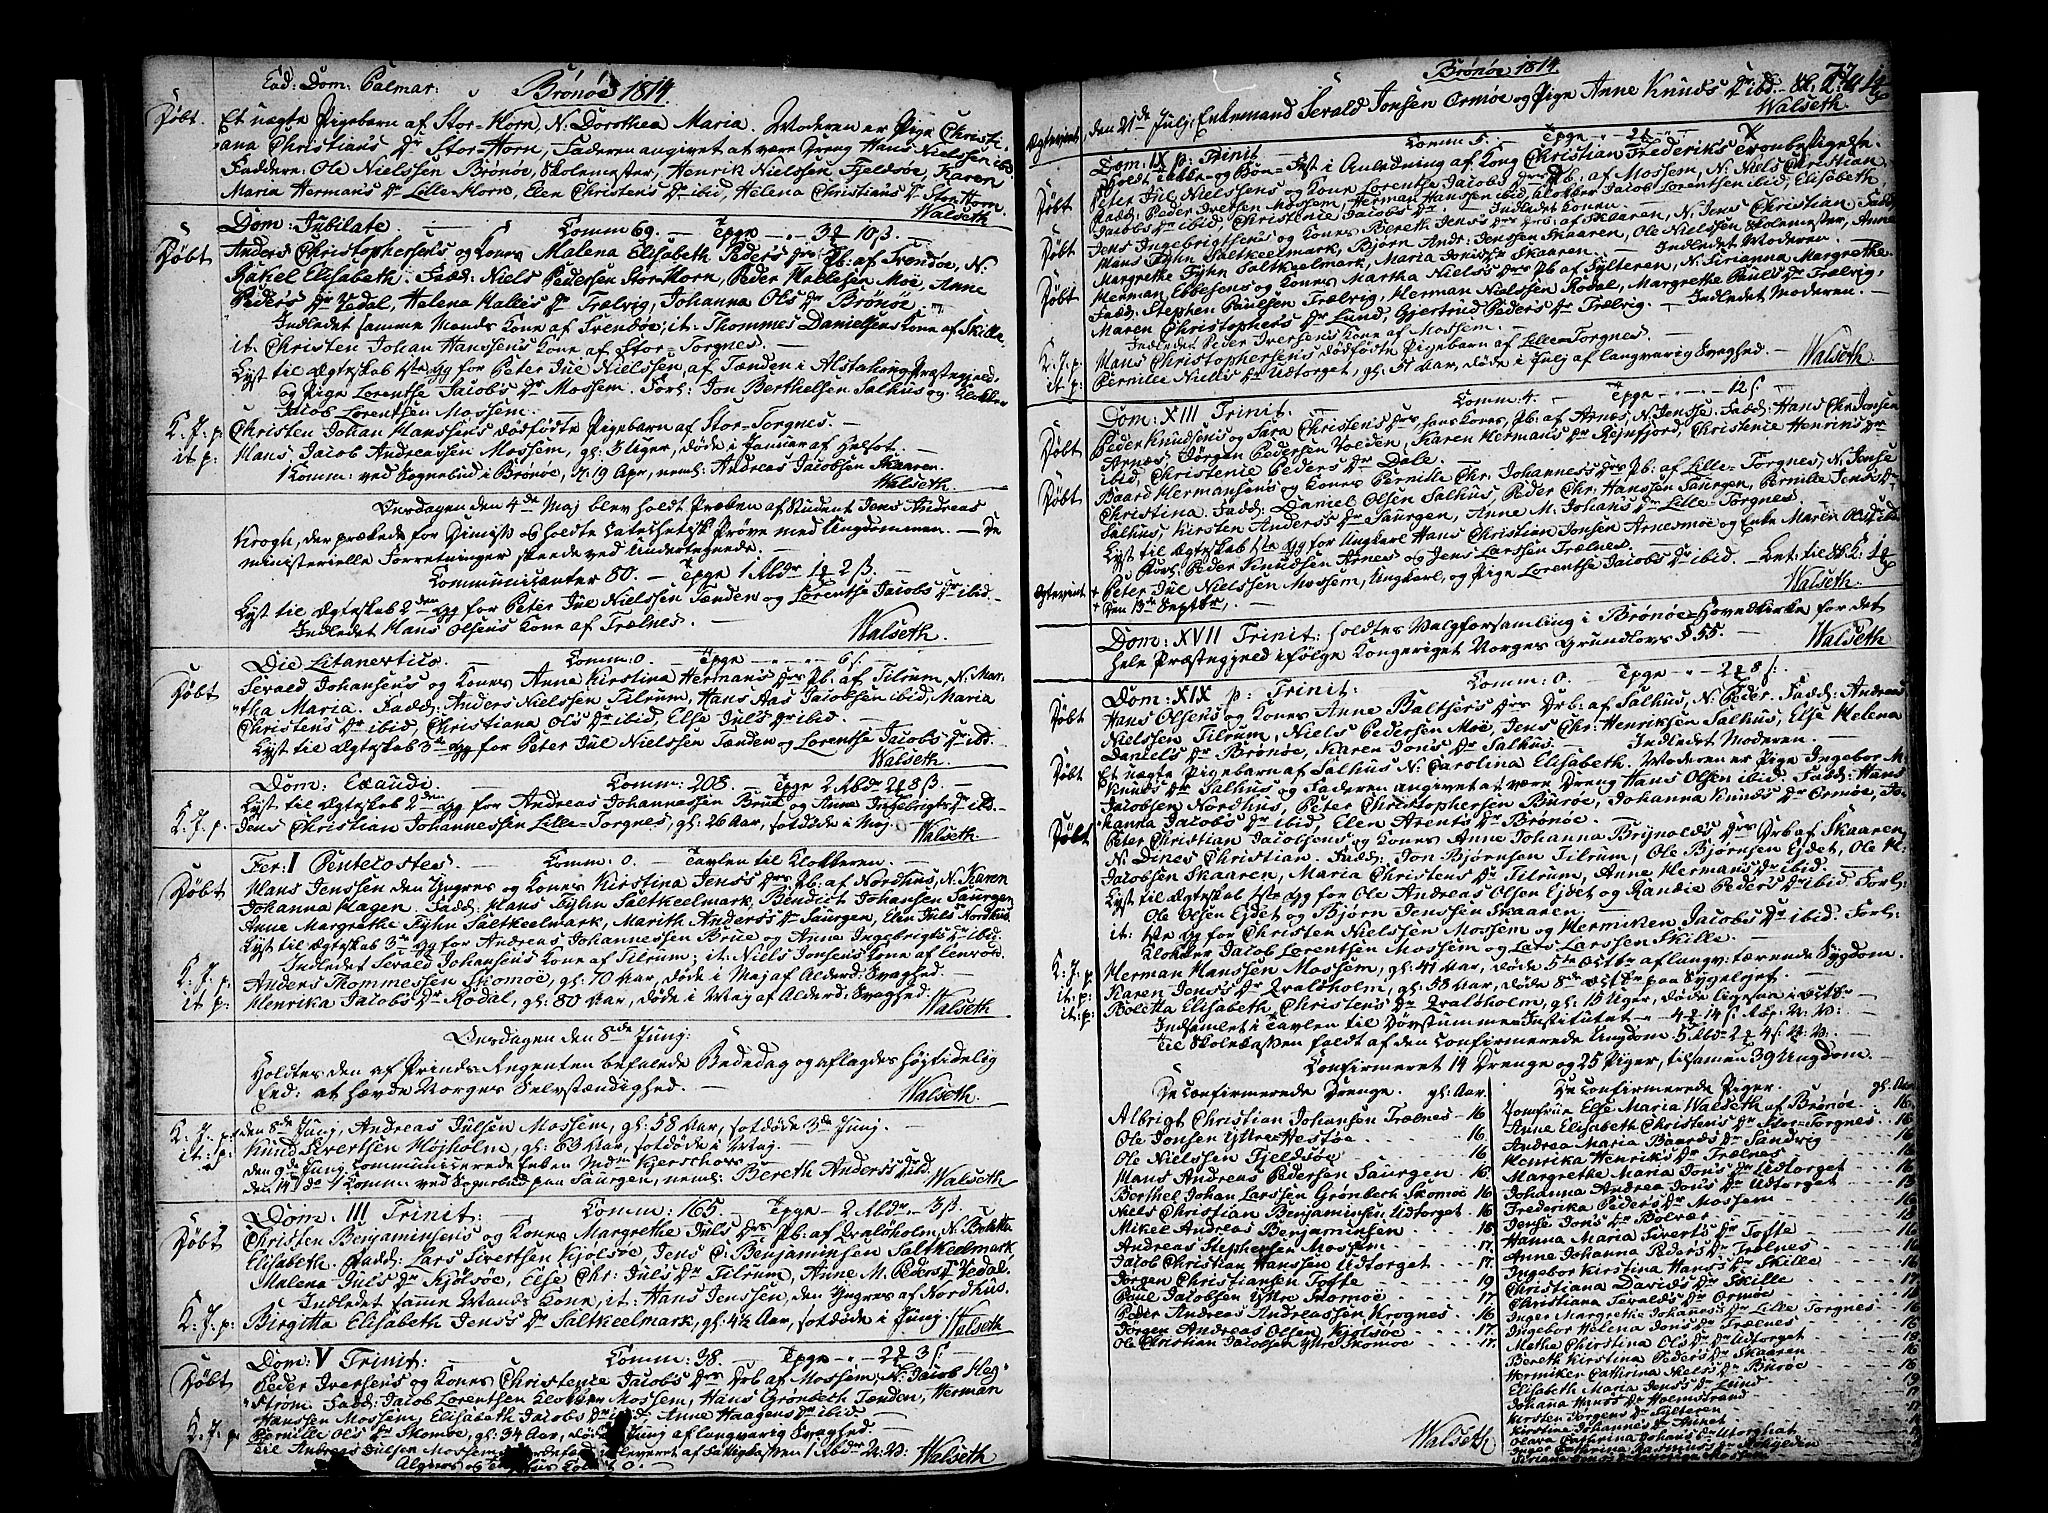 Ead: Dom: Palmar: Brönöe 1814.
Døbt
Et uægte Pigebarn af Stor-Horn, N. Dorothea Maria. Moderen er Pige Christi-
ana Christians Dr Stor-Horn, Faderen angivet at være Dreng Hans Nielssen ibid.
Faddere: Ole Nielssen Brönöe, Skolemester, Henrik Nielssen Fjeldsöe, Karen
Maria Hermans Dr Lille-Horn, Elen Christens Dr ibid, Helena Christians Dr Stor Horn.
Walseth.
Dom: Jubilate. Comm 69. Tpge 3 10 ß.
Døbt
Anders Christophersens og Kones Malena Elisabeth Peders Drs Pb: af Trendöe, N:
Rakel Elisabeth. Fadd: Niels Pedersen Stor Horn, Peder Hallesen Möe, Anne
Peders Dr Vedal, Helena Halles Dr Trælvig, Johanna Ols Dr Brönöe.
Indledet samme Mands Kone af Trendöe, it: Thommes Danielsens Kone af Skille,
it: Christen Johan Hanssens Kone af Stor-Torgnes.
Lyst til Ægteskab 1ste Gg for Peter Jul Nielssen af Tænden i Alstahoug Præstegjeld,
og Pige Lorentse Jacobs Dr Mossem. Forl: Jon Berthelsen Salhus og Klokker
Jacob Lorentsen Mossem.
K: J: p: Christen Johan Hanssens dødfødte Pigebarn af Stor-Torgnes.
it p: Hans Jacob Andreassen Mossem, gl: 3 Uger, døde i Januar af Halsot.
1 Komm: ved Sognebud i Brönöe, d. 19 Apr, neml: Andreas Jacobsen Skaaren.
Walseth.
Onsdagen den 4de Maj blev holdt Præken af Student Jens Andreas
Krogh, der prækede for Dimiss og holdte Catechetisk Prøve med Ungdommen. De
ministerielle Forretninger skeede ved Undertegnede.
Communicanter 80. Tpge 1 Rbdr 1 2 ß.
Lyst til Ægteskab 2den Gg for Peter Jul Nielssen Tænden og Lorentse Jacobs Dr ibid.
Indledet Hans Olsens Kone af Trælnes.
Walseth.
Die Litanevtico. Comm: 0. Tpge 6 ß.
Døbt
Serald Johansens og Kones Anne Kirstina Hermans Drs Pb. af Tilrum, N. Mar-
tha Maria. Fadd: Anders Nielssen Tilrum, Hans Aas Jacobsen ibid, Maria
Christens Dr ibid, Christiana Ols Dr ibid, Else Juls Dr ibid.
Lyst til Ægteskab 3de Gg for Peter Jul Nielssen Tænden og Lorentse Jacobs Dr ibid.
Walseth.
Dom: Exaudi Comm: 208. Tpge 2 Rbdr 2 8 ß.
Lyst til Ægteskab 2den Gg for Andreas Johannessen Brue og Anne Ingebrigts Dr ibid.
K: J: p. Jens Christian Johannessen Lille-Torgnes, gl: 26 Aar, sotdøde i Maj.
Walseth.
Fer: I Pentecostes. Comm: 0. Tavlen til Klokkeren.
Døbt
Hans Jenssen den Yngres og Kones Kirstina Jenss Drs Pb. af Nordhus, N. Karen
Johanna Hagen. Fadd: Hans Fyhn Saltkeelmark, Bendict Johansen Saurgen
Anne Margrethe Fyhn Saltkeelmark, Marith Anders Dr Saurgen, Elen Juls Dr Nordhus.
Lyst til Ægteskab 3de Gg for Andreas Johannessen Brue og Anne Ingebrigts Dr ibid.
Indledet Serald Johansens Kone af Tilrum; it: Niels Jonsens Kone af
K: J: p. Anders Thommessen Skomöe, gl: 70 Aar, døde i Maj af Alderd: Svaghed.
it p: Henrika Jacobs Dr Rodal, gl: 80 Aar, døde i Maj af Alderd: Svaghed.
Walseth
Onsdagen den 8de Junj:
Holdtes den af Prinds Regenten befalede Bededag og aflagdes høytidelig
Eed: at hævde Norges Selvstændighed.
Walseth.
K: J: p: den 8de Junj Andreas Julsen Mossem, gl: 58 Aar, sotdøde 3de Junj.
it: p: Knud Sivertsen Höjholm, gl: 63 Aar, sotdøde i Maj.
den 9de Junj communicerede Enken Mdm Kjerschow.
den 14de 1 Komm: ved Sognebud paa Saurgen, neml: Bereth Anders Dr ibid.
Walseth
Dom: III Trinit: Comm: 165. Tpge 2 Rbdr 3 ß.
Døbt
Christen Benjaminsens og Kones Margrethe Juls Drs Pb: af Qvalöholm, N. Boletta
Elisabeth. Fadd: Lars Sivertsen Kjölsöe, Jens C. Benjaminsen Saltkeelmark
Malena Juls Dr Kjölsöe, Else Chr: Juls Dr Tilrum, Anne M. Peders Dr Vedal.
Indledet samme Mands Kone, it: Hans Jenssen, den Yngres af Nordhus.
K: J: p: Birgitta Elisabeth Jens Dr Saltkeelmark, gl: 4½ Aar, sotdøde i Junj.
Walseth
Dom: V Trinit: Comm: 38. Tpge 2 3 ß.
Døbt
Peder Iversens og Kones Christenie Jacobs Drs Drb af Mossem, N. Jacob Heg-
ström. Fadd: Jacob Lorentsen Klokker Mossem, Hans Grönbech Tænden, Herman
Hanssen Mossem, Elisabeth Jacobs Dr ibid, Anne Haagens Dr ibid.
K: J: p: Pernille Ols Dr Skomöe, gl: 34 Aar, døde i Junj af langvarig Svaghed.
Til Andreas Julsen Mossems leveret af Fattigkassen 1 Rbdr N: V:
Walseth

Brönöe 1814.
Ægteviet den 21de Julj, Enkemand Serald Jonsen Ormöe og Pige Anne Knuds Dr ibd.
Walseth.
Dom: IX p: Trinit Comm 5. Tpge 2
Holdt Takke- og Bøn-Fest i Anledning af Kong Christian Frederiks Tronbestigelse.
Døbt
Peter Jul Nielssens og Kone Lorentse Jacobs Drs Pb. af Mossem, N: Niels Christian.
Fadd: Peder Iversen Mossem, Herman Hanssen ibid, Klokker Jacob Lorentsen ibid, Elisabeth
Jacobs Dr ibid, Christenie Jacobs Dr Indledet Konen.
Døbt
Jens Ingebrigtsens og Kones Bereth Jens Drs Drb af Skaaren, N. Jens Christian. Fadd:
Hans Fyhn Saltkeelmark, Björn Andr: Jenssen Skaaren, Ole Nielssen Skolemester, Anne
Margrethe Fyhn Saltkeelmark, Maria Jens Dr Skaaren. Indledet Moderen.
Døbt
Herman Ebbesens og Kones Martha Niels Drs Pb af Sylteren, N. Sirianna Margrethe.
Fadd: Stephen Paulsen Trælvig, Herman Nielssen Rodal, Margrethe Pauls Dr Trælvig,
Maren Christophers Dr Lund, Gjertrud Peders Dr Trælvig. Indledet Moderen.
Indledet Peder Iversens Kone af Mossem.
K. J. p. Hans Christophersens dødfødte Pigebarn af Lille-Torgnes.
it p: Pernille Niels Dr Udtorget, gl: 51 Aar, døde i Julj af langvarig Svaghed.
Walseth
Dom: XIII Trinit. Comm: 4. Tpge 12 ß.
Døbt
Peder Knudsens og Sara Christens Drs hans Kones, Pb. af Arnæs, N. Jensse. Fadd: Hans Chr Jonsen
Arnæs, Jörgen Pedersen Voeden, Karen Hermans Dr Rejnfjord, Christenie Henriks Dr
ibid, Christenie Peders Dr Dale.
Døbt
Baard Hermansens og Kones Pernille Chr: Johannes Drs Pb: af Lille-Torgnes, N. Jensse
Christina. Fadd: Daniel Olsen Salhus, Peder Chr: Hanssen Saurgen, Pernille Jens Dr
Salhus, Kirsten Anders Dr Saurgen, Anne M. Johans Dr Lille-Torgnes.
Lyst til Ægteskab 1ste Gg for Ungkarl Hans Christian Jonsen Arnesmöe og Enke Maren Ols Dr ibid.
Forl: Peder Knudsen Arnes og Jens Larssen Trælnes.
Ægteviet
Peter Jul Nielssen Mossem, Ungkarl, og Pige Lorentse Jacobs Dr ibid.
Den 13de Septbr.
Walseth.
Dom: XVII Trinit: holdtes Valgforsamling i Brönöe Hovedkirke for det
hele Præstegjeld ifølge Kongeriget Norges Grundlovs § 55.
Walseth
Dom: XIX p: Trinit: Comm: 0. Tpge 2 8 ß.
Døbt
Hans Olsens og Kones Anne Baltsers Drs Drb: af Salhus, N. Peder. Fadd: Andreas
Nielssen Tilrum, Niels Pedersen Möe, Jens Chr: Henriksen Salhus, Else Helena
Daniels Dr Brönöe, Karen Jons Dr Salhus. Indledet Moderen.
Døbt
Et uægte Pigebarn af Salhus N: Carolina Elisabeth. Moderen er Pige Ingebor M.
Knuds Dr Salhus og Faderen angivet at være Dreng Hans Olsen ibid. Fadd: Hans
Jacobsen Nordhus, Peter Christophersen Buröe, Johanna Knuds Dr Ormöe, Jo-
hanna Jacobs Dr ibid, Elen Arents Dr Brönöe.
Døbt
Peter Christian Jacobsens og Kones Anne Johanna Brynolds Drs Drb af Skaaren
N. Dines Christian. Fadd: Jon Björnsen Tilrum, Ole Björnsen Ejdet, Ole M.
Jacobsen Skaaren, Maria Christens Dr Tilrum, Anne Hermans Dr ibid.
Lyst til Ægteskab 1ste Gg for Ole Andreas Olsen Ejdet og Randie Peders Dr ibid. Forl:
Ole Olsen Ejdet og Björn Jenssen Skaaren.
it: 1ste Gg for Christen Nielssen Mossem og Hermiken Jacobs Dr ibid. Forl:
Klokker Jacob Lorentsen Mossem og Lars Larssen Skille.
K: J: p Herman Hanssen Mossem, gl: 41 Aar, døde 5te Octbr af langv: tærende Sygdom.
it: p: Karen Jens Dr Qvalöholm, gl: 58 Aar, døde 8de Octbr paa Sygeleyet.
it: p: Boletta Elisabeth Christens Dr Qvalöholm, gl: 15 Uger, døde ligesaa i Octbr
Indsamlet i Tavlen til Døvstumme Institutet 4 14 ß Rbp: N: V:
Til Skolekassen faldt af den confirmerede Ungdom 5 Rbdr 2 4 ß N: V:
Confirmeret 14 Drenge og 25 Piger, tilsamen 39 Ungdom.
De confirmerede Drenge. gl: Aar.
Albrigt Christian Johansen Trælnes 16
Ole Jonsen Yttre Hestöe 16
Ole Nielssen Fjeldsöe 16
Hans Andreas Pedersen Saurgen 16
Berthel Johan Larssen Grönbech Skomöe 16
Niels Christian Benjaminsen Udtorget 16
Mikel Andreas Benjaminsen 18
Andreas Stephensen Mossem 17
Jacob Christian Hanssen Udtorget 17
Jörgen Christiansen Tofte 19
Paul Jacobsen Yttre Skomöe 17
Peder Andreas Andreassen Krognes 16
Jörgen Andreas Olsen Kjölsöe 17
Ole Christian Jacobsen Yttre Skomöe 17
De confirmerede Piger. gl: Aar
Jomfrue Else Maria Walseth af Brönöe 16
Anne Elisabeth Christens Dr Stor-Torgnes 16
Andrea Maria Baards Dr Sandvig 16
Henrika Henriks Dr Trælnes 16
Margrethe Maria Jons Dr Udtorget 16
Johanna Andrea Jons Dr Udtorget 15
Frederika Peders Dr Mossem 16
Jensse Jons Dr Bolvær 18
Hanna Maria Siverts Dr Tofte 16
Anne Johanna Peders Dr Trælnes 16
Ingebor Kirstina Hans Dr Skille 16
Christiana Davids Dr Skille 17
Christiana Seralds Dr Ormöe 18
Inger Margrethe Johans Dr Lille Torgnes 16
Ingebor Helena Jons Dr Trælnes 16
Mathe Christina Ols Dr Udtorget 18
Bereth Kirstina Peders Dr Skaaren 16
Hermiker Cathrina Niels Dr Buröe 16
Elisabeth Maria Jens Dr Lund 19
Johana Hans Dr Holmstrand
Kirsten Jörgens Dr Sylteren
Kirstina Johannes Dr
Olava Cathrina Johans Dr
Inger Cathrina Rasmus Dr
Walseth